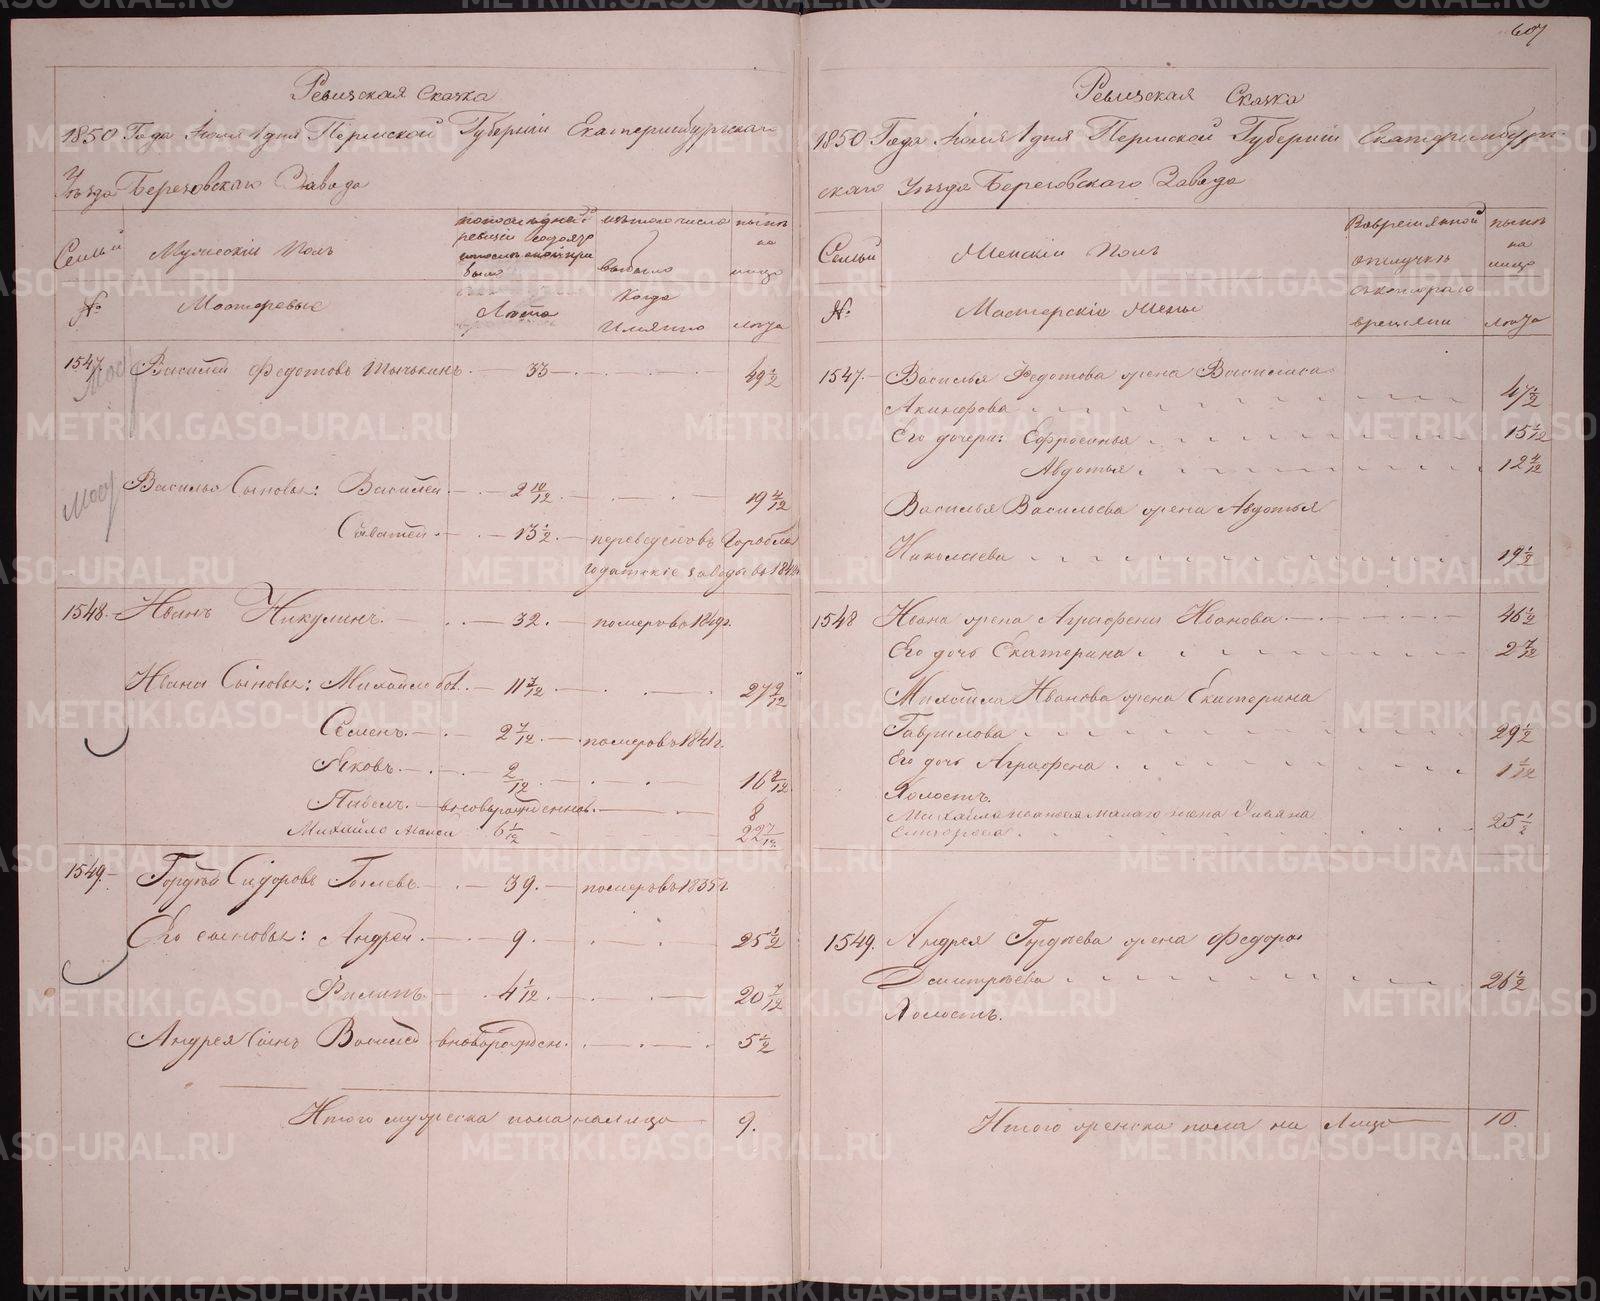 607
Ревизская Сказка
1850 Года Июня 1 дня Пермской Губерніи Екатеринбургскаго
Уѣзда Березовскаго Завода
Семьи
Мужескій Полъ
по последней
ревизіи состояло
было
изъ того числа
выбыло
нынѣ
на
лицо
№
Мастеровые
Лѣта
Когда
Имянно
лѣта
1547. Василей Федотовъ Тычькинъ 33 49 1/2
Василья Сыновья: Василей 2 10/12 19 4/12
Саватей 13 1/2 переведенъ въ Гороблаго
годатскіе заводы въ 184
1548. Иванъ Никулинъ 32. померъ въ 1849г.
Ивана Сыновья: Михайло бол. 11 7/12 27 2/12
Семенъ 2 7/12 померъ въ 1841г.
Яковъ 2/12 16 8/12
Павелъ вновьрожденной 8
Михайло малой 6 1/12 22 7/12
1549. Гордей Сидоровъ 39. померъ въ 1835г.
Его сыновья: Андрей 9. 25 1/2
Филипъ 4 1/12 20 7/12
Андрея Сынъ Василей вноворожден. 5 1/2
Итого мужеска пола налицо 9.
Ревизская Сказка
1850 Года Июня 1 дня Пермской Губерніи Екатеринбург-
скаго Уѣзда Березовскаго Завода
Семьи
Женскій Полъ
Вовремянной
отлучкѣ
съкотораго
времяни
нынѣ
на
лицо
№
Мастерскіе Жены
лѣта
1547. Василья Федотова жена Василиса
Акинфова 47 1/2
Его дочери: Ефросинья 15 1/12
Авдотья 12 4/12
Василья Васильева жена Авдотья
Николаева 19 1/2
1548 Ивана жена Аграфена Иванова 46 1/2
Его дочь Екатерина 2 7/12
Михайла Иванова жена Екатерина
Гаврилова 29 1/2
Его дочь Аграфена 1 1/12
Холостъ.
Михайла Иванова малаго жена Ульяна
25 1/2
1549. Андрея Гордѣева жена Федора
Дмитрѣева 26 1/2
Холостъ.
Итого женска пола на Лицо 10.
METRIKI.GASO-URAL.RU